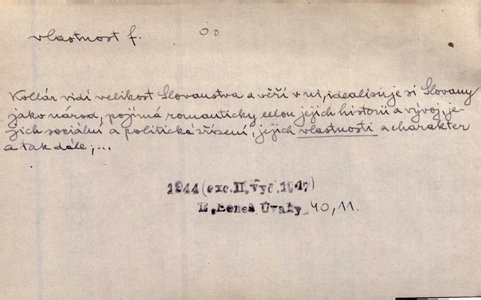 vlastnost f.
Kollár vidí velikost Slovanstva a věří v ni, idealisuje si Slovany
jako národ, pojímá romanticky celou jejich historii a vývoj, je-
jich sociální a politické zřízení, jejich vlastnosti a charakter
a tak dále; ...
1944 (exc. II. vyd. 1947)
E. Beneš Úvahy 40, 11.